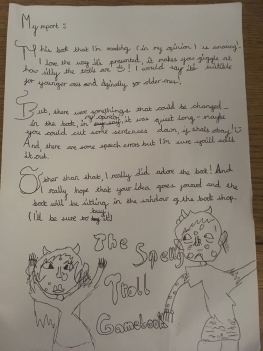 My report :
This book that I'm reading (in my opinion) is amazing!
I love the way it's presented, it makes you giggle at
how silly the trolls are! I would say it's suitable
for younger ones and definitely for older ones!
But, there was somethings that could be changed -
in my opinion
in the book, it was quite long - maybe
you could cut some sentences down, if that's okay!
And, there are some speech errors but I'm sure you'll sort
it out.
Other than that, I really did adore the book! And
really hope that your idea goes forward and the
book will be sitting in the window of the book shop.
(I'll be sure to buy it!)
The
Spelly
Troll
Gamebook